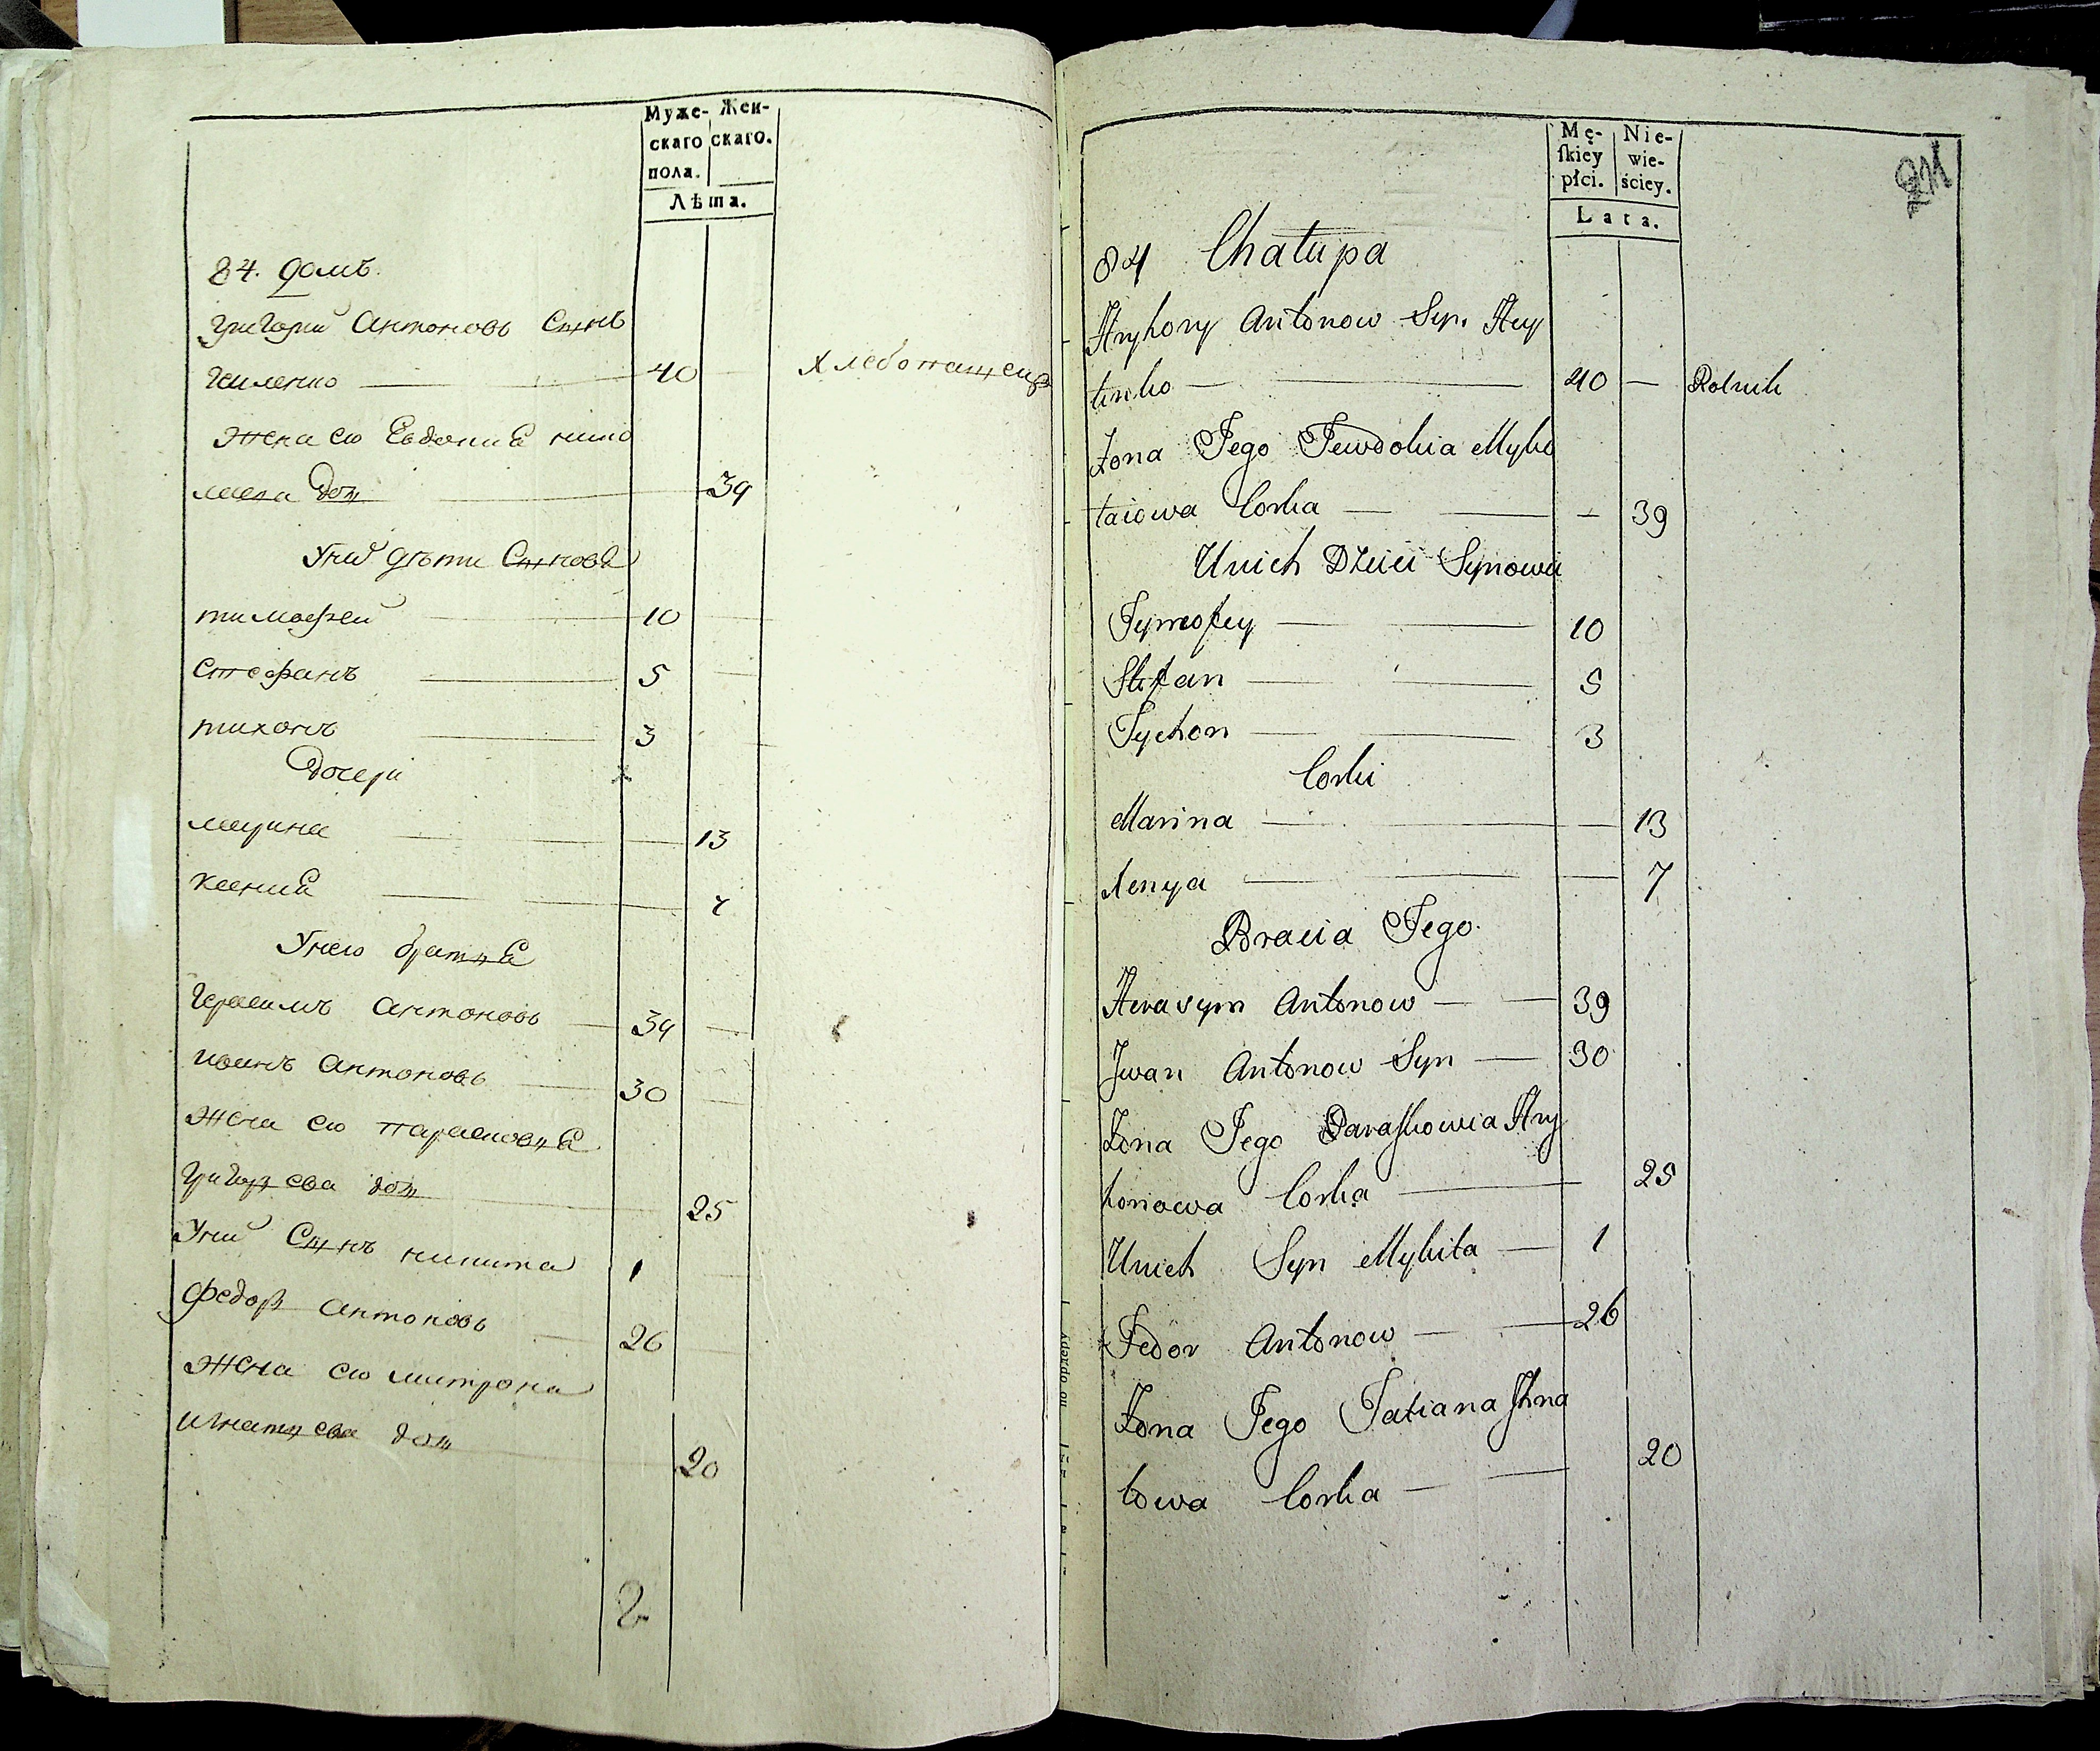 Муже-
скаго
пола.
Жен-
скаго.
Лѣта.
84. домъ.
Григорий Антоновъ Сынъ
Гиленко 40 Хлебопашецъ
Жена ево Евдокиѣ нико
лаева дочь 39
У них дѣти Сыновѣ
тимофей 10
Стефанъ 5
тихонъ 3
дочери
марина 13
ксениѣ 7
У нево братьѣ
Герасимъ Антоновъ 39
иванъ Антоновъ 30
Жена ево парасковьѣ
Григорьева дочь 25
У них Сынъ никита 1
Федоръ Антоновъ 26
Жена ево
игнатьева дочь 20
2
Mę-
ſkiey
płci.
Nie-
wie-
ściey.
Lata.
84 Chałupa
Hryhory Antonow Syn Hey
łenko 40 Rolnik
Żona Jego Jewdokia Myko
łaiowa Corka 39
Unich Dzieci Synowie
Tymofey 10
Stefan 5
Tychon 3
Corki
Marina 13
Xenya 7
Bracia Jego
Herasym Antonow 39
Jwan Antonow Syn 30
Żona Jego Paraſkowia Hry
horiowa Corka 25
Unich Syn Mykita 1
Fedor Antonow 26
Żona Jego Tatiana Jhna
towa Corka 20